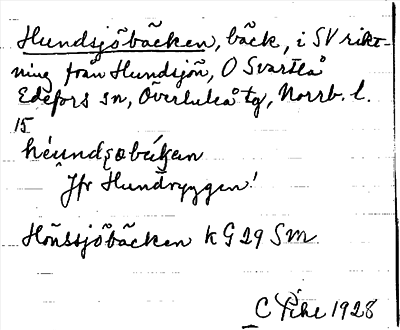 Hundsjöbäcken, bäck, i SV rikt-
ning från Hundsjön, O Svartlå
Edefors sn, Överluleå tg, Norrb. l.
15
Jfr Hundryggen!
Hönssjöbäcken k G 29 Sm
C Pihl 1928